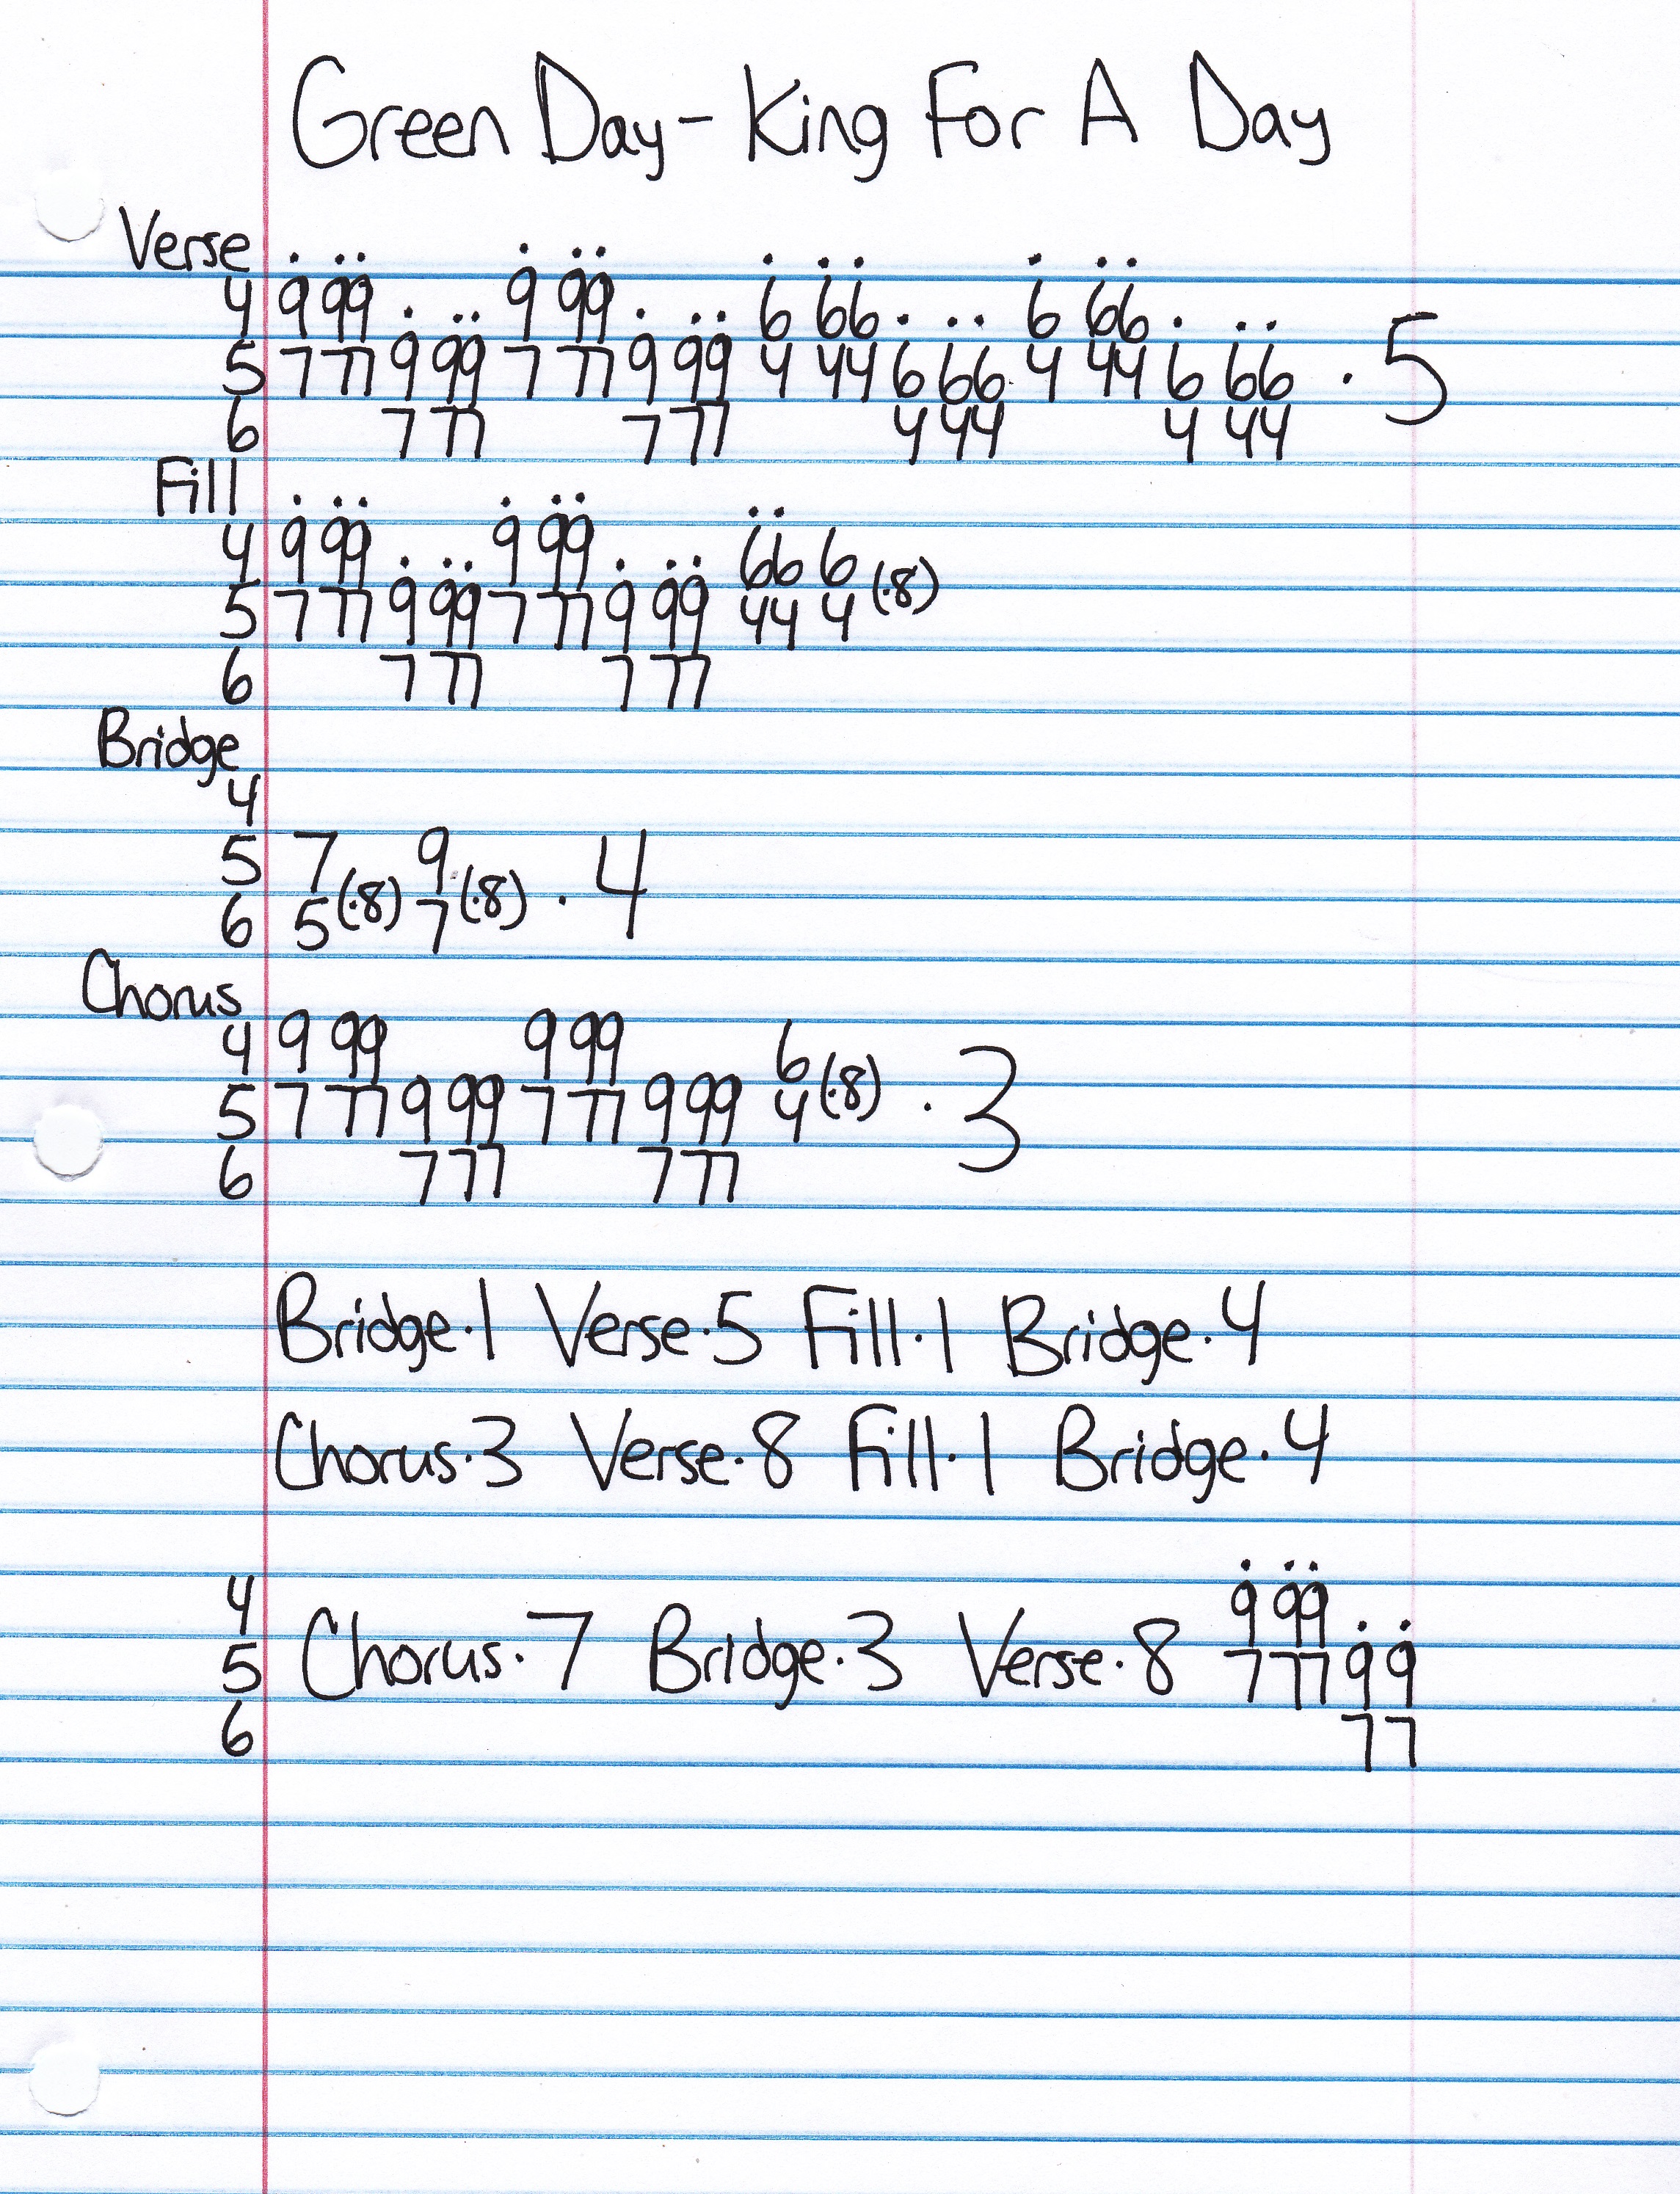 Green Day - King For A Day
Verse
4 9 99 9 99 6 66 6 66
5 7 77 9 99 7 77 9 99 4 44 6 66 4 44 6 66 · 5
6 7 77 7 77 4 44 4 44
Fill
4 9 99 9 99 66 6
5 7 77 9 99 7 77 9 99 44 4 (·8)
6 7 77 7 77
Bridge
4
5 7 9
6 5 (·8) 7 (·8) · 4
Chorus
4 9 99 9 99 6
5 7 77 9 99 7 77 9 99 4 (·8) · 3
6 7 77 7 77
Bridge·1 Verse·5 Fill·1 Bridge·4
Chorus·3 Verse·8 Fill·1 Bridge·4
4 9 99
5 Chorus·7 Bridge·3 Verse·8 7 77 9 9
6 7 7